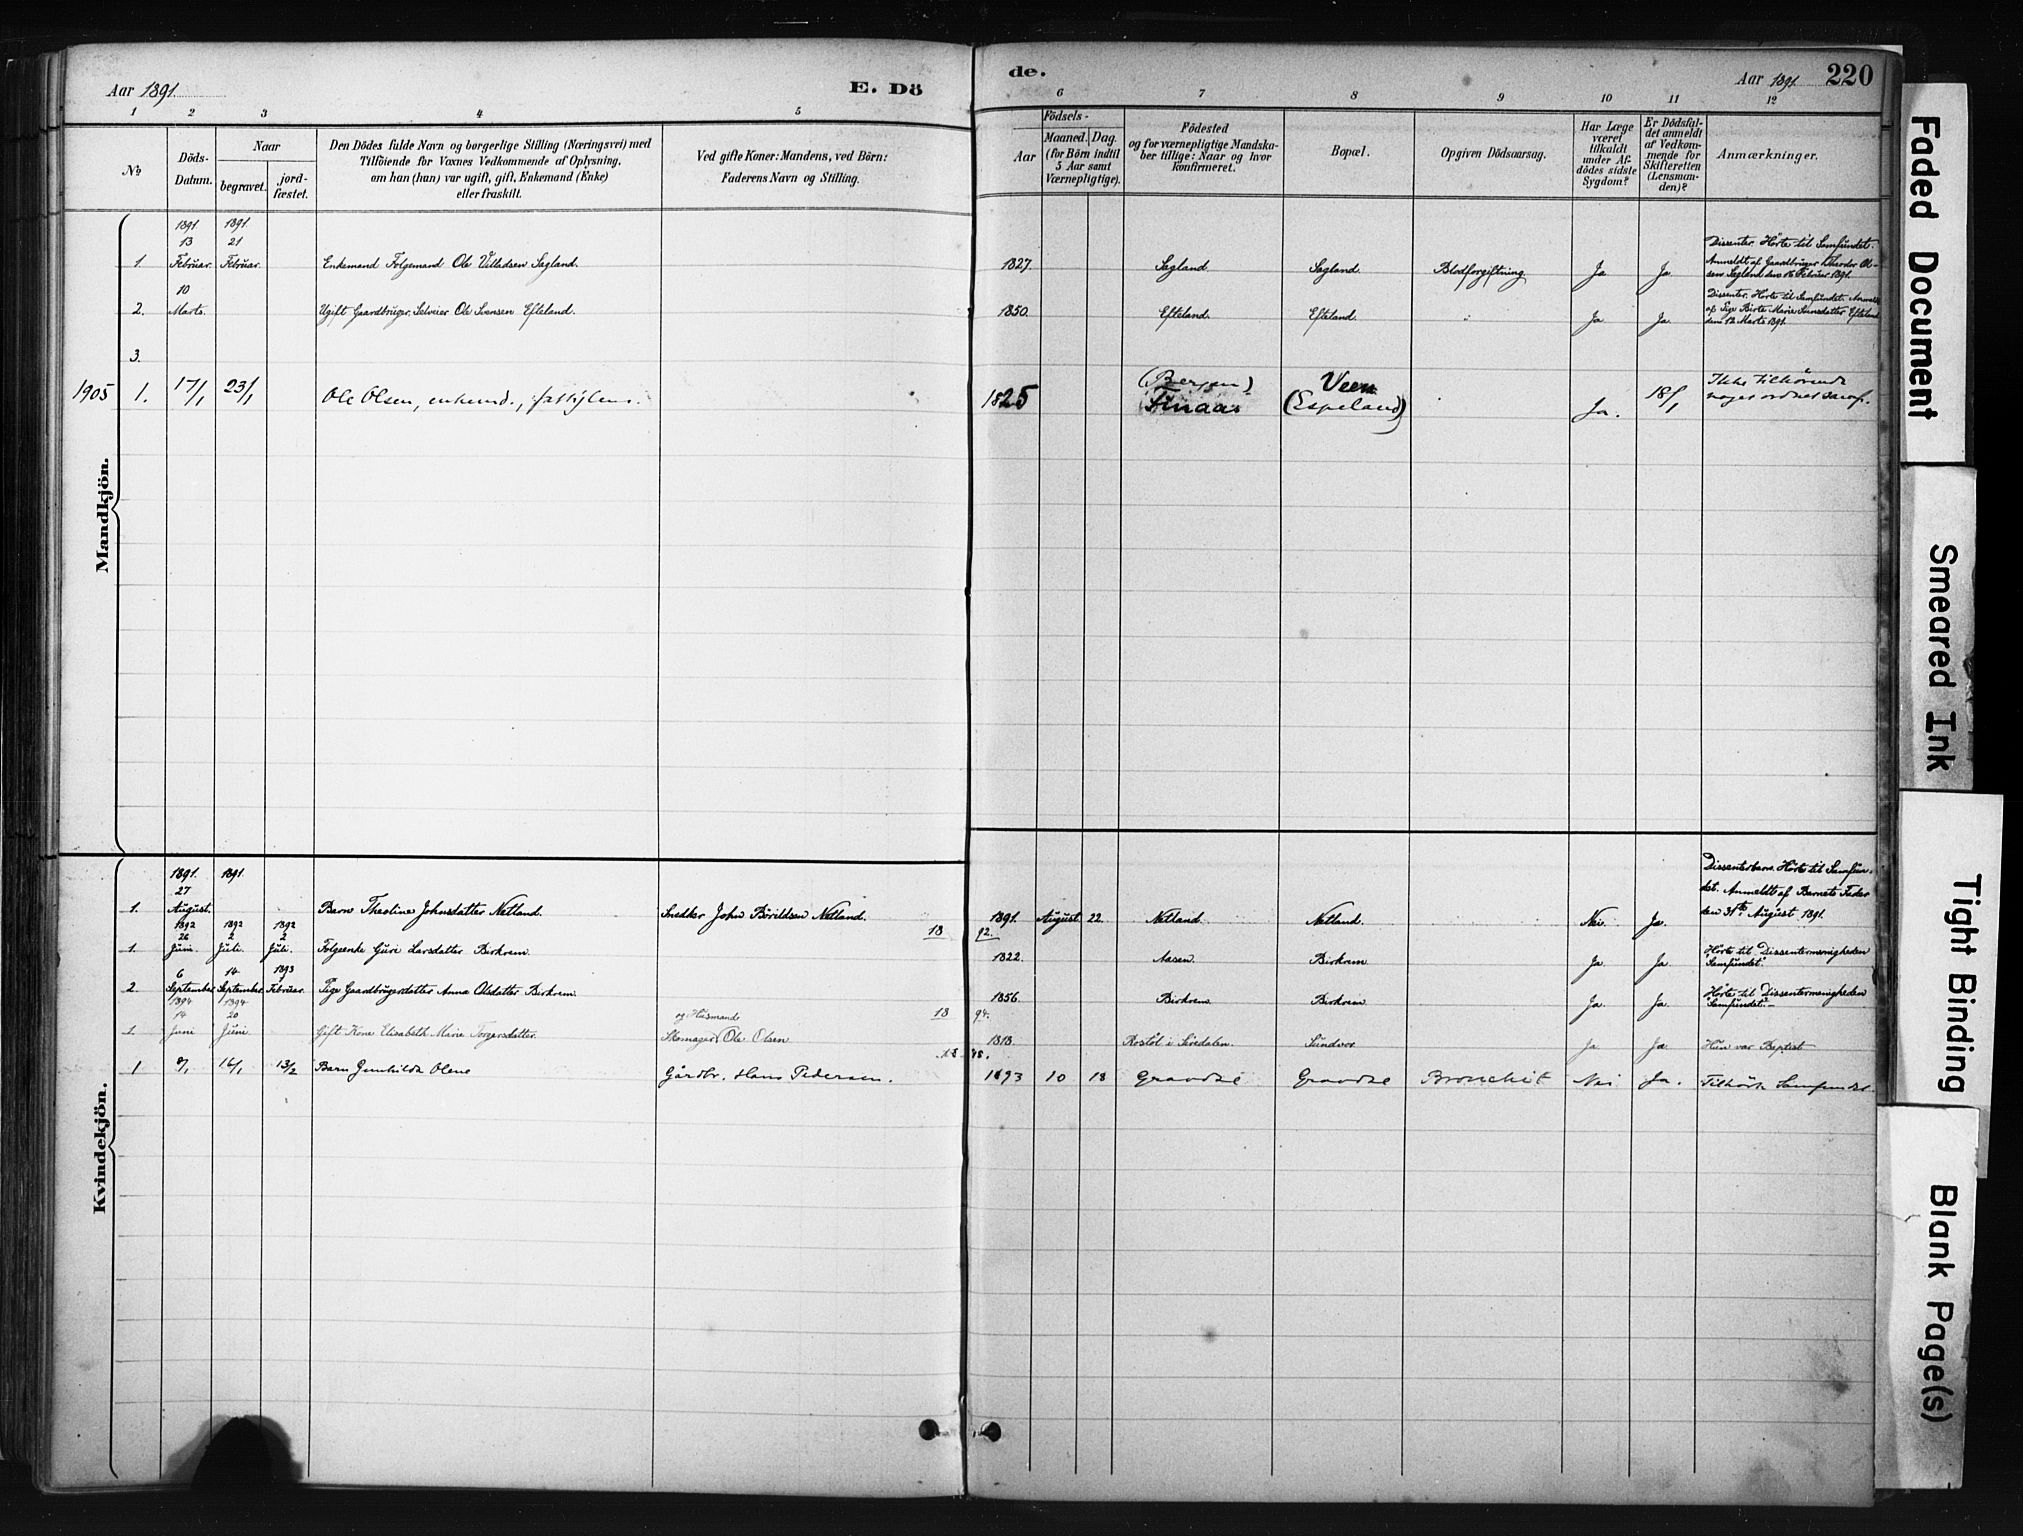 Aar 1891.
E. Dö
de.
Aar 1891.
220
1 2 3 4 5 6 7 8 9 10 11 12
No
Döds-
Datum.
Naar
begravet.
jord-
fæstet.
Den Dödes fulde Navn og borgerlige Stilling (Næringsvei) med
Tilföiende for Voxnes Vedkommende af Oplysning,
om han (hun) var ugift, gift, Enkemand (Enke)
eller fraskilt.
Ved gifte Koner: Mandens, ved Börn:
Faderens Navn og Stilling.
Födsels-
Aar
Maaned. Dag.
(for Börn indtil
5 Aar samt
Værnepligtige).
Födested
og for værnepligtige Mandska-
ber tillige: Naar og hvor
konfirmeret.
Bopæl.
Opgiven Dödsaarsag.
Har Læge
været
tilkaldt
under Af-
dödes sidste
Sygdom?
Er Dödsfal-
det anmeldt
af Vedkom-
mende for
Skifteretten
(Lensman-
den)?
Anmærkninger.
Mandkjön.
1891. 1891.
13 21
Dissenter. Hörte til Samfundet.
1. Februar. Februar. Enkemand Folgemand Ole Villadsen Sagland. 1827. Sagland. Sagland. Blodforgiftning Ja Ja Anmeldt af Gaardbruger Theodor Ol-
sen Sagland den 16 Februar 1891.
10
Dissenter. Hörte til Samfundet. Anmeldt
2. Marts. Ugift Gaardbruger, Selveier Ole Svensen Efteland. 1850. Efteland. Efteland. " Ja Ja af Birte Marie Efteland
den 12 Marts 1891.
3.
1905 1. 17/1 23/1 Ole Olsen, enkemd., fattiglem. 1825 (Bergen) Veen
(Espeland) Ja. 18/1 Ikke tilhörende
noget ordnet samf.
Kvindekjön.
1891. 1891.
27
Dissenterbarn. Hörte til Samfun-
det. Anmeldt af Barnets Fader
1. August. Barn Theoline Johnsdatter Netland. Snedker John Bövildsen Netland. 1891. August 22. Netland. Netland. Nei Ja. den 31te August 1891.
1892 1892 1892 18 92.
26 2 2
1. Juni. Juli. Juli. Folgeenke Guri Larsdatter Birkrem. 1822. Aasen. Birkrem Ja Ja Hörte til Dissentermenigheden
"Samfundet".
6 14 1893
1
2. September September Februar. Pige Gaardbrugerdatter Anna Olsdatter Birkrem. 1856. Birkrem Birkrem Ja Ja. Hörte til Dissentermenigheden
"Samfundet".
1894 1894 18 94.
14 20
og Husmand
1. Juni Juni Gift Kone Elisabeth Marie Torgersdatter. Skomager Ole Olsen 1818. Rostöl i Siredalen. Sundvor Ja Ja Hun var Baptist
1 9/1 16/1 13/2 Barn Gunhilda Olene Gårdbr. Hans Pedersen. 1893 10 18 Gravdal Gravdal Bronchit Nei Ja. Tilhörte Samfundet.
Faded Document
Smeared Ink
Tight Binding
Blank Page(s)